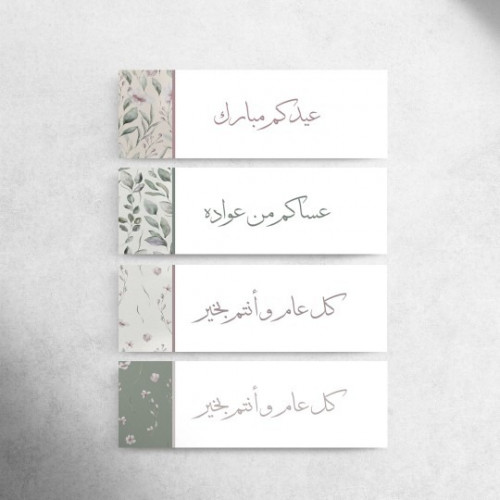 عيدكم مبارك
عساكم من عواده
كل عام وأنتم بخير
كل عام وأنتم بخير